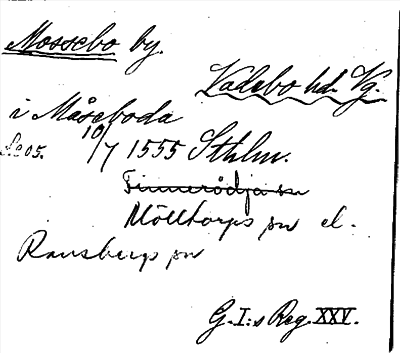 Mossebo by.
Vadsbo hd. Vg.
i Måseboda
S. 205. 10/7 1555 Sthlm.
Finnerödja sn
Mölltorps sn el.
Ransbergs sn
G. I:s Reg. XXV.